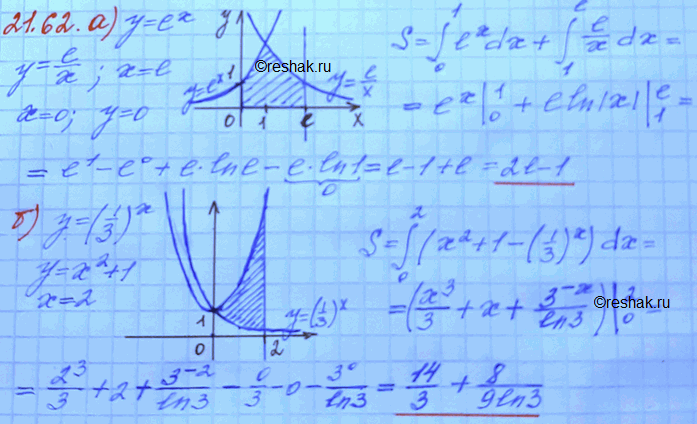 21.62. а) y=eˣ
y=e/x; x=e
x=0; y=0
y
1
y=eˣ
y=e/x
0 1 e x
©reshak.ru
S=∫₀¹ eˣdx + ∫₁ᵉ e/x dx =
= eˣ|₀¹ + e ln|x| |₁ᵉ =
= e¹ - e⁰ + e·ln e - e·ln1 = e-1+e = 2e-1
0
б) y=(1/3)ˣ
y=x²+1
x=2
1
y=(1/3)ˣ
0 2
S=∫₀² (x²+1-(1/3)ˣ) dx=
=(x³/3 + x + 3⁻ˣ/ln3)|₀² =
©reshak.ru
= 2³/3 + 2 + 3⁻²/ln3 - 0/3 - 0 - 3⁰/ln3 = 14/3 + 8/9ln3